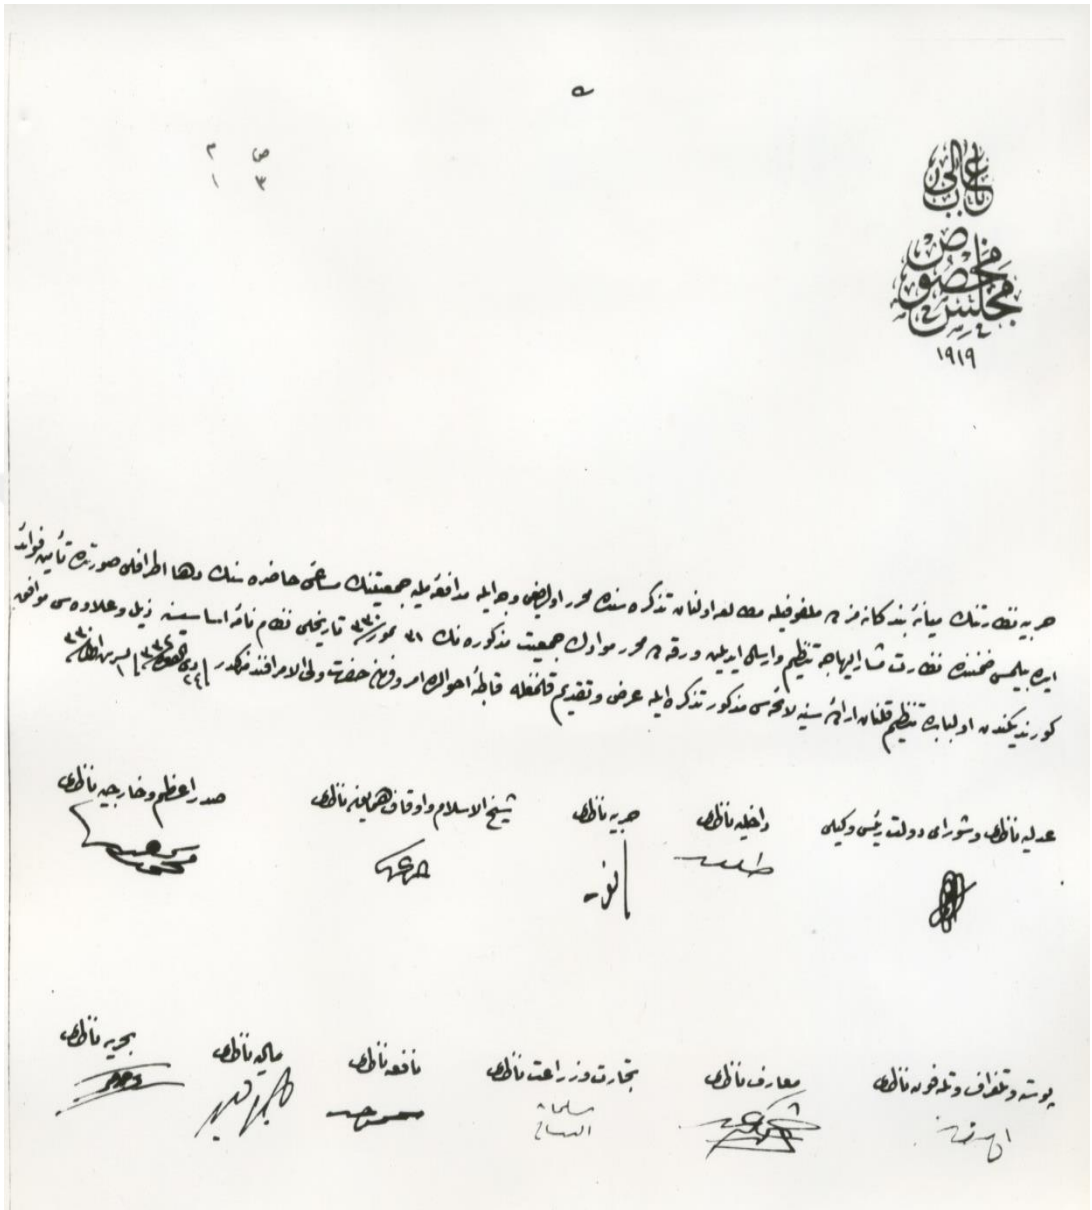 ص م
٣ ١
باب عالی
مجلس مخصوص
١٩١٩
حربیه نظارتنك میانهٔ بندكانه‌مزده ملفوفیله مطالعه اولنان تذكره‌سنده محرر اولدیغی وجهله مدافعهٔ ملیه جمعیتنك مساعیٔ حاضره‌سنك دها اطرافلی صورتده تأمین فوائد
ایده بیلمسی ضمننده نظارت مشار الیهاجه تنظیم و ارسال ایدیلن ورقه‌ده محرر موادك جمعیت مذكوره‌نك ٣١ تموز ٣٣٠ تاریخلی نظامنامهٔ اساسیسنه ذیل و علاوه‌سی موافق
كورندیكندن اولبابده تنظیم قلنان ارادهٔ سنیه لایحه‌سی مذكور تذكره ایله عرض و تقدیم قلنمغله قاطبهٔ احوالده امر و فرمان حضرت ولی الامر افندمزكدر
صدر اعظم و خارجیه ناظری
شیخ الاسلام و اوقاف همایون ناظری
حربیه ناظری
داخلیه ناظری
عدلیه ناظری و شورای دولت رئیس وكیلی
انور
طلعت
بحریه ناظری
مالیه ناظری
نافعه ناظری
تجارت و زراعت ناظری
معارف ناظری
پوسته و تلغراف و تلفون ناظری
سلیمان
البستانی